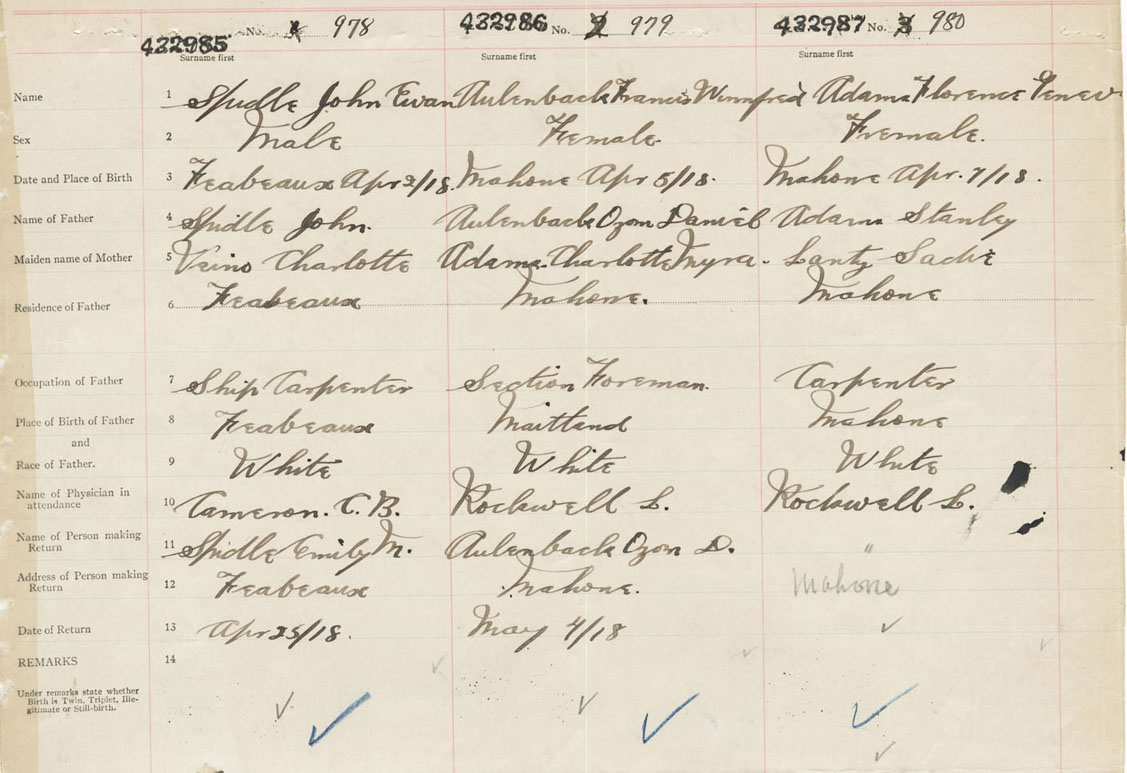 432985 No. 1 978 432986 No. 2 979 432987 No. 3 980
Surname first Surname first Surname first
Name 1 Spidle John Ewan Aulenback Francis Winnfred Adams Florence Genev
Sex 2 Male Female Fremale.
Date and Place of Birth 3 Feabeaux Apr 2/18. Mahone Apr 5/18. Mahone Apr. 7/18.
Name of Father 4 Spidle John. Aulenback Ozon Daniel Adams Stanley
Maiden name of Mother 5 Veino Charlotte Adams Charlotte Myra. Lantz Sadie
Residence of Father 6 Feabeaux Mahone. Mahone
Occupation of Father 7 Ship Carpenter Section Foreman. Carpenter
Place of Birth of Father 8 Feabeaux Maitland Mahone
and
Race of Father. 9 White White White
Name of Physician in attendance 10 Cameron. C. B. Rockwell L. Rockwell L.
Name of Person making Return 11 Spidle Emily M. Aulenback Ozon D. "
Address of Person making Return 12 Feabeaux Mahone. Mahone
Date of Return 13 Apr 25/18. May 4/18
REMARKS 14
Under remarks state whether
Birth is Twin, Triplet, Ille-
gitimate or Still-birth.